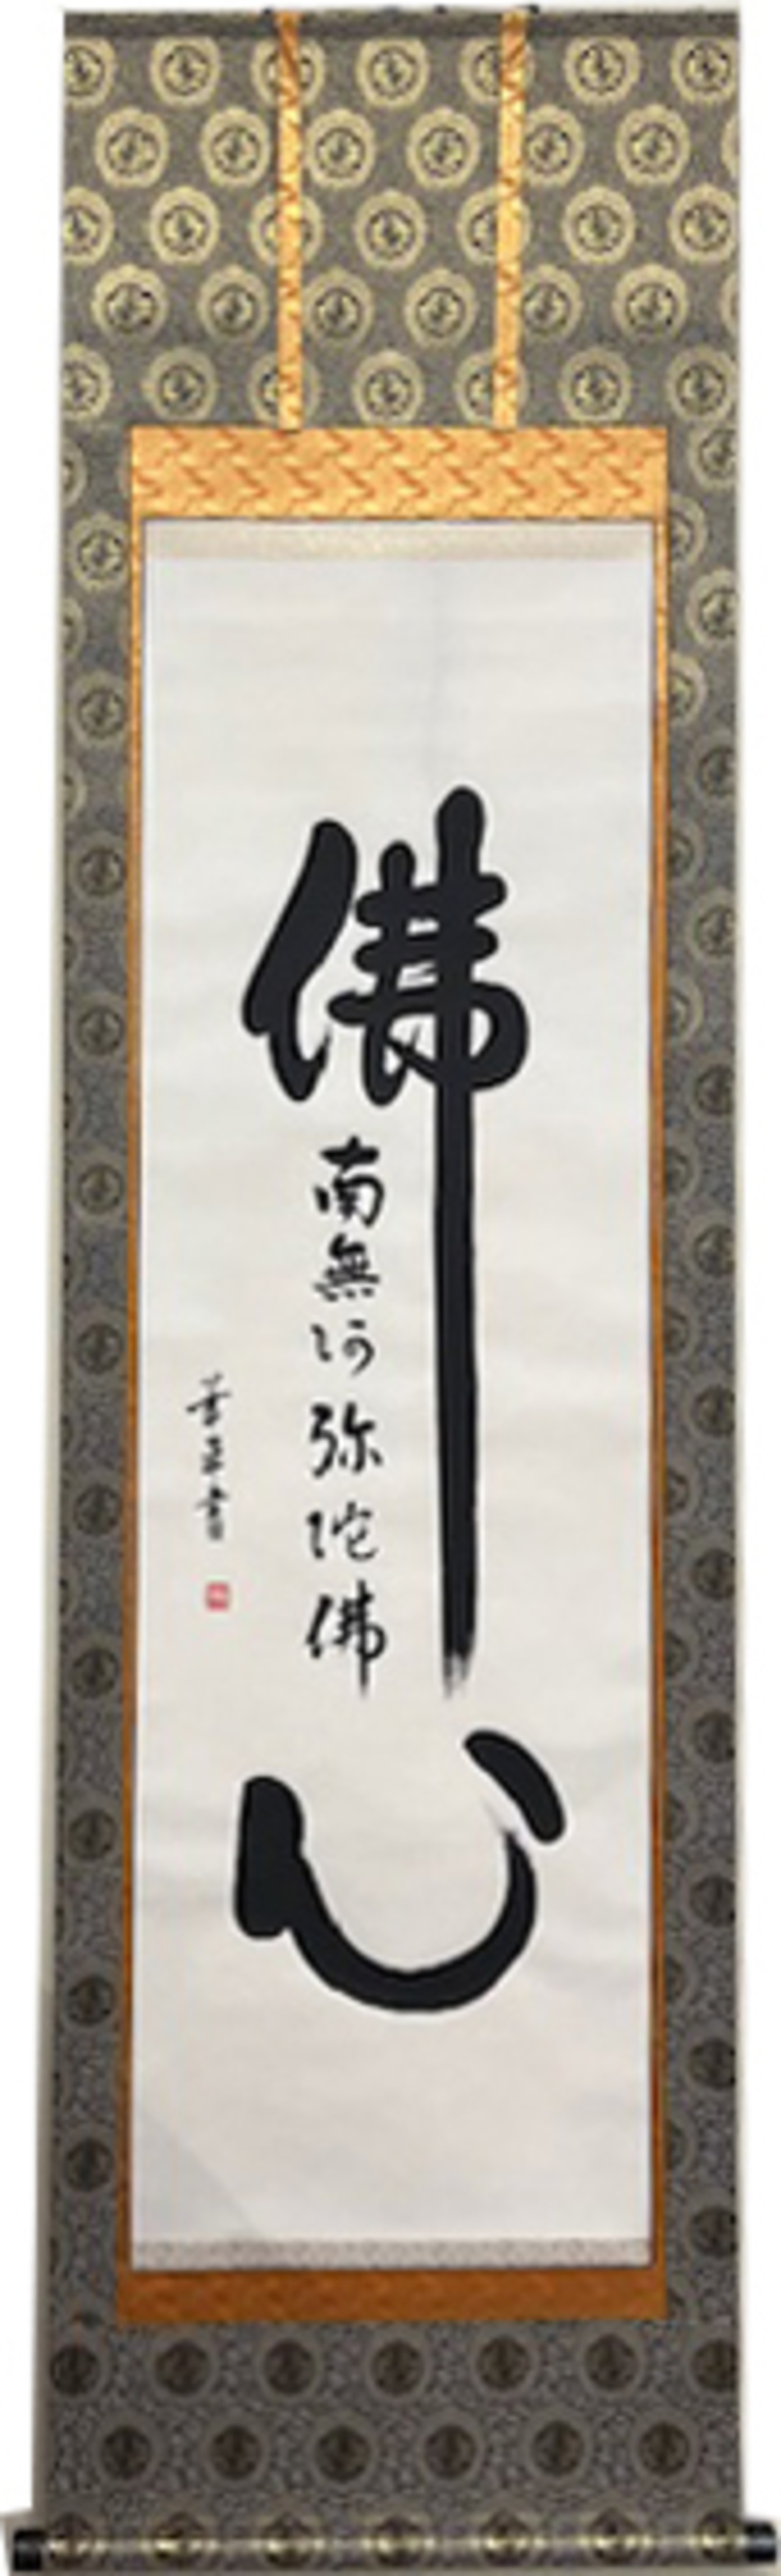 佛心
南無阿弥陀佛